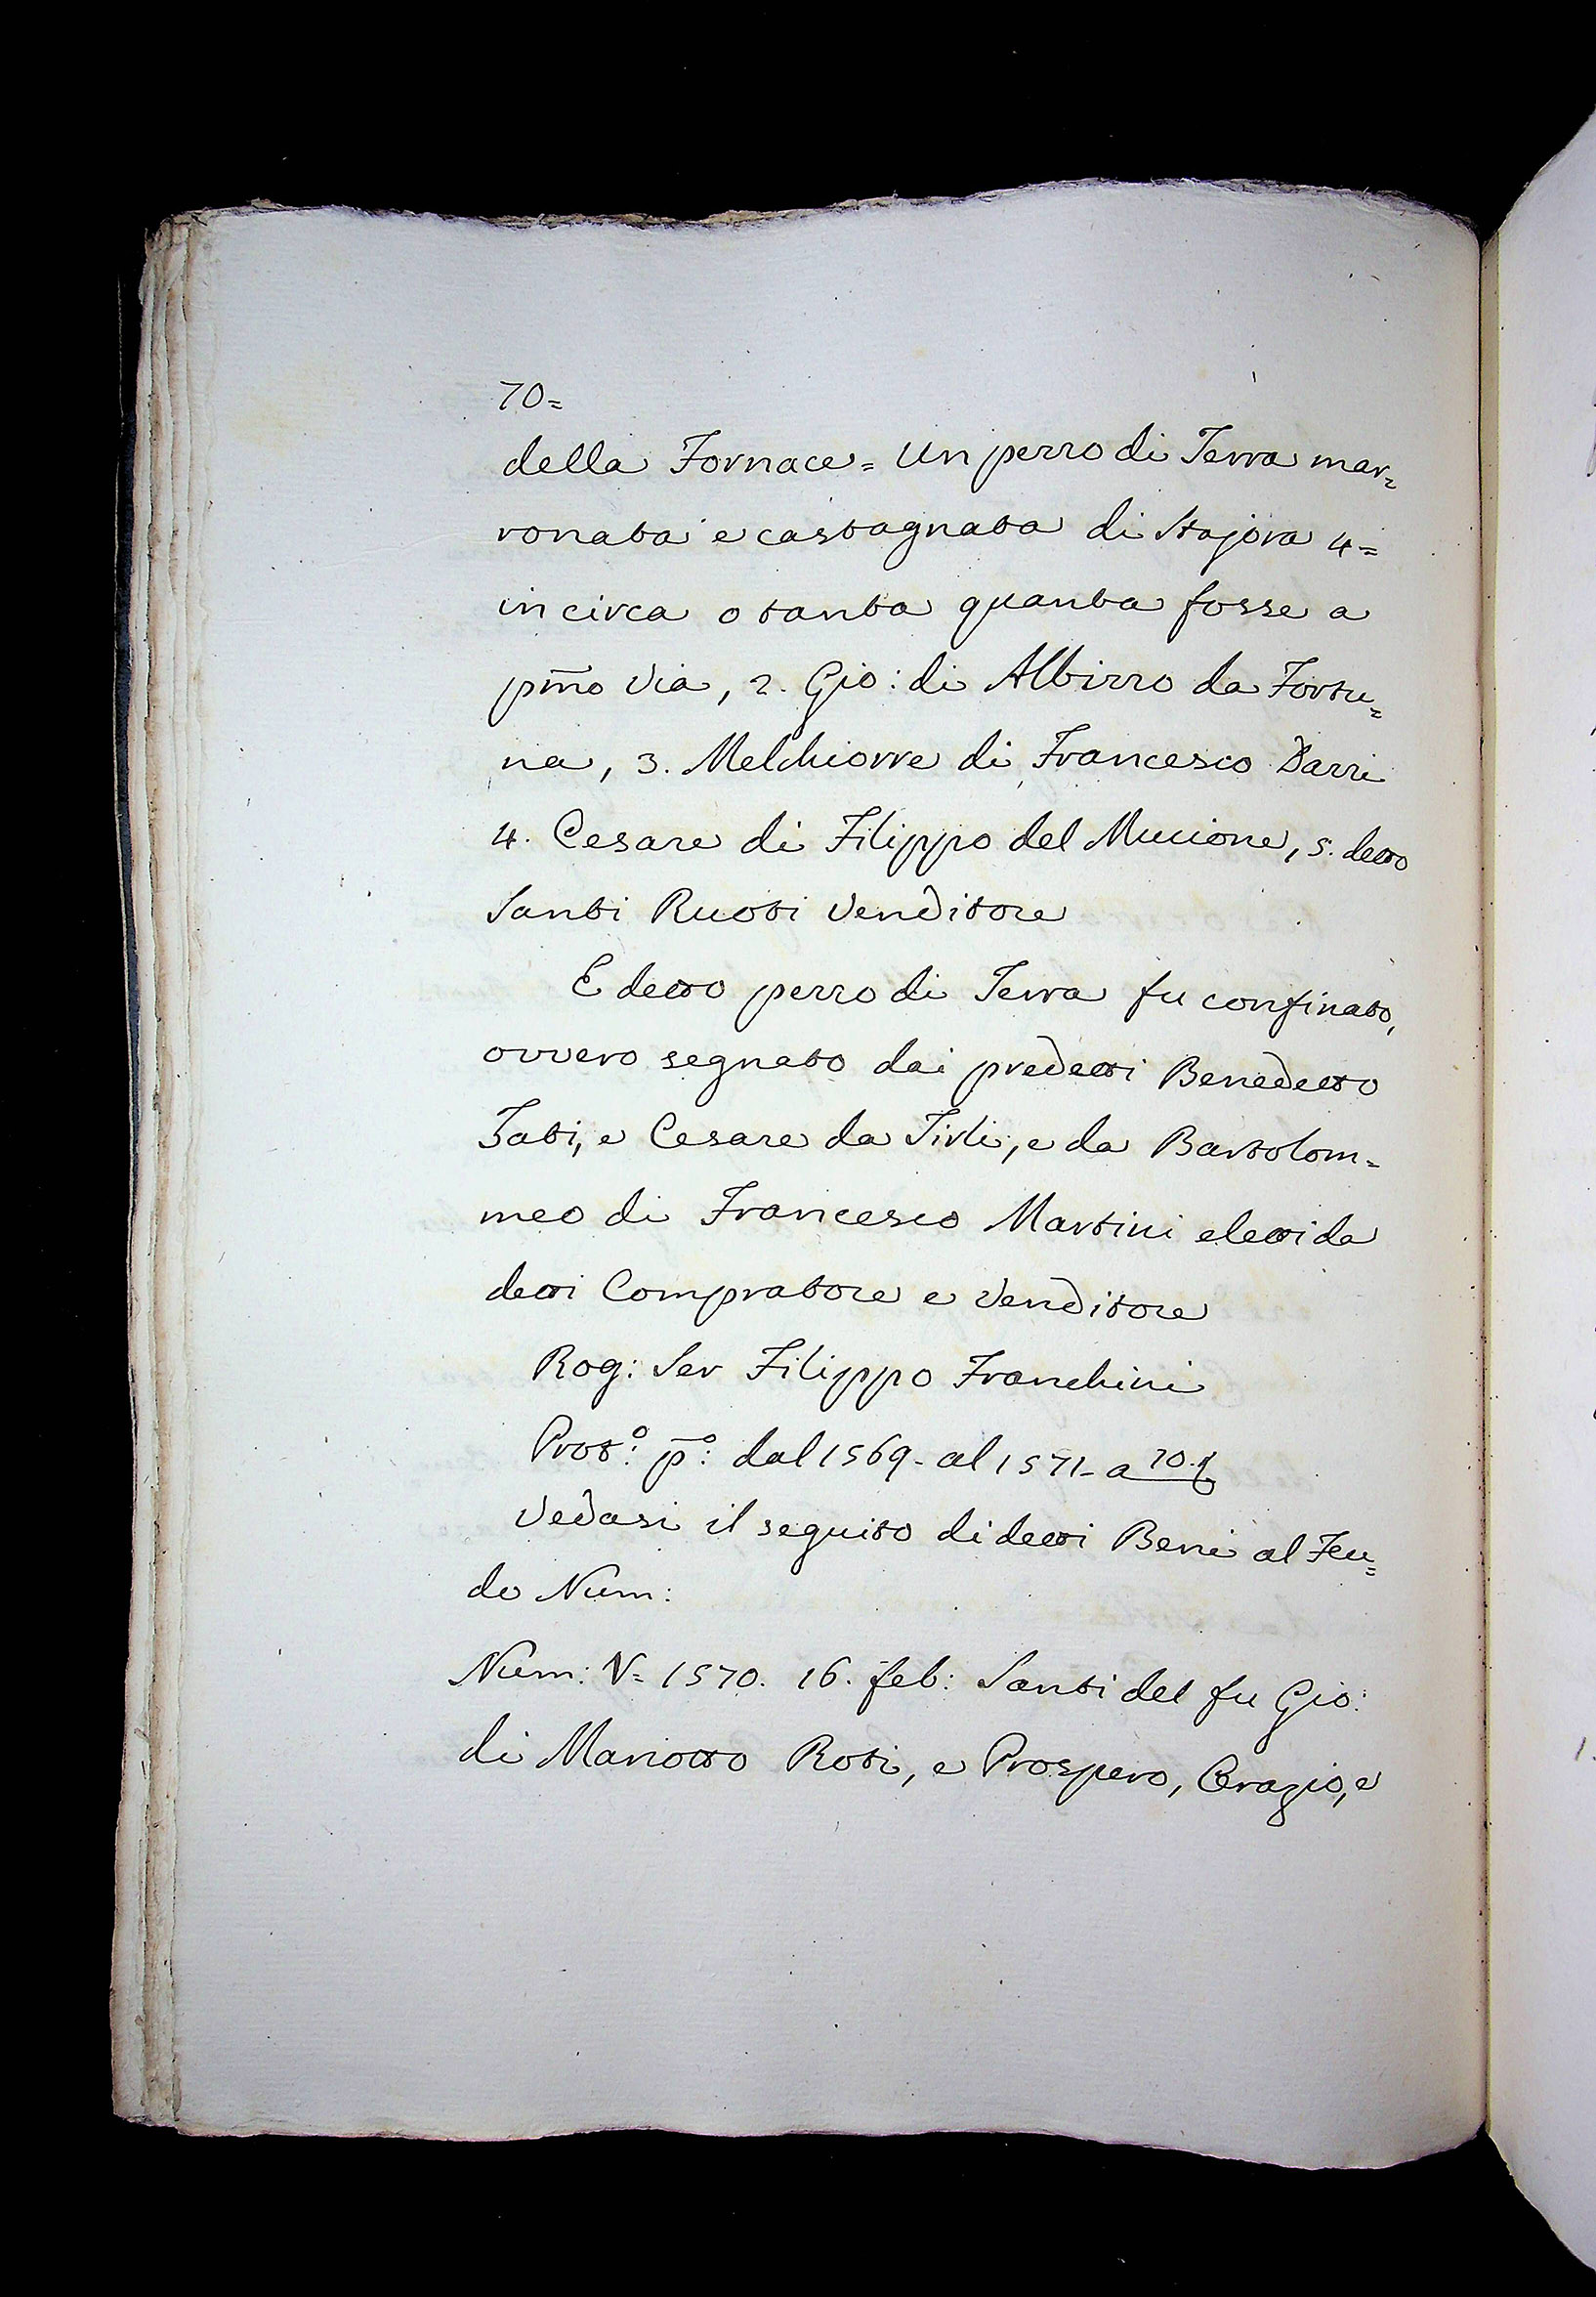 70=
della Fornace = Un pezzo di Terra mar=
ronata e castagnata di Stajora 4=
in circa o tanta quanta fosse a
pmo Via, 2. Gio: di Albizzo da Fortu=
na, 3. Melchiorre di Francesco Dazzi
4. Cesare di Filippo del Muccione, 5. detto
Santi Ruoti Venditore
E detto pezzo di Terra fu confinato,
ovvero segnato dai predetti Benedetto
Tati, e Cesare da Tirli, e da Bartolom=
meo di Francesco Martini eletti da
detti Compratore e Venditore
Rog: Ser Filippo Franchini
Prot.º pº: dal 1569 - al 1571 - a 70.
Vedasi il seguito di detti Beni al Feu=
do Num:
Num: V= 1570. 16. feb: Santi del fu Gio:
di Mariotto Roti, e Prospero, Orazio, e